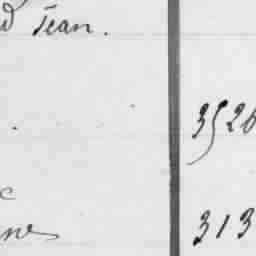 d Jean.
3526
c
ne
313